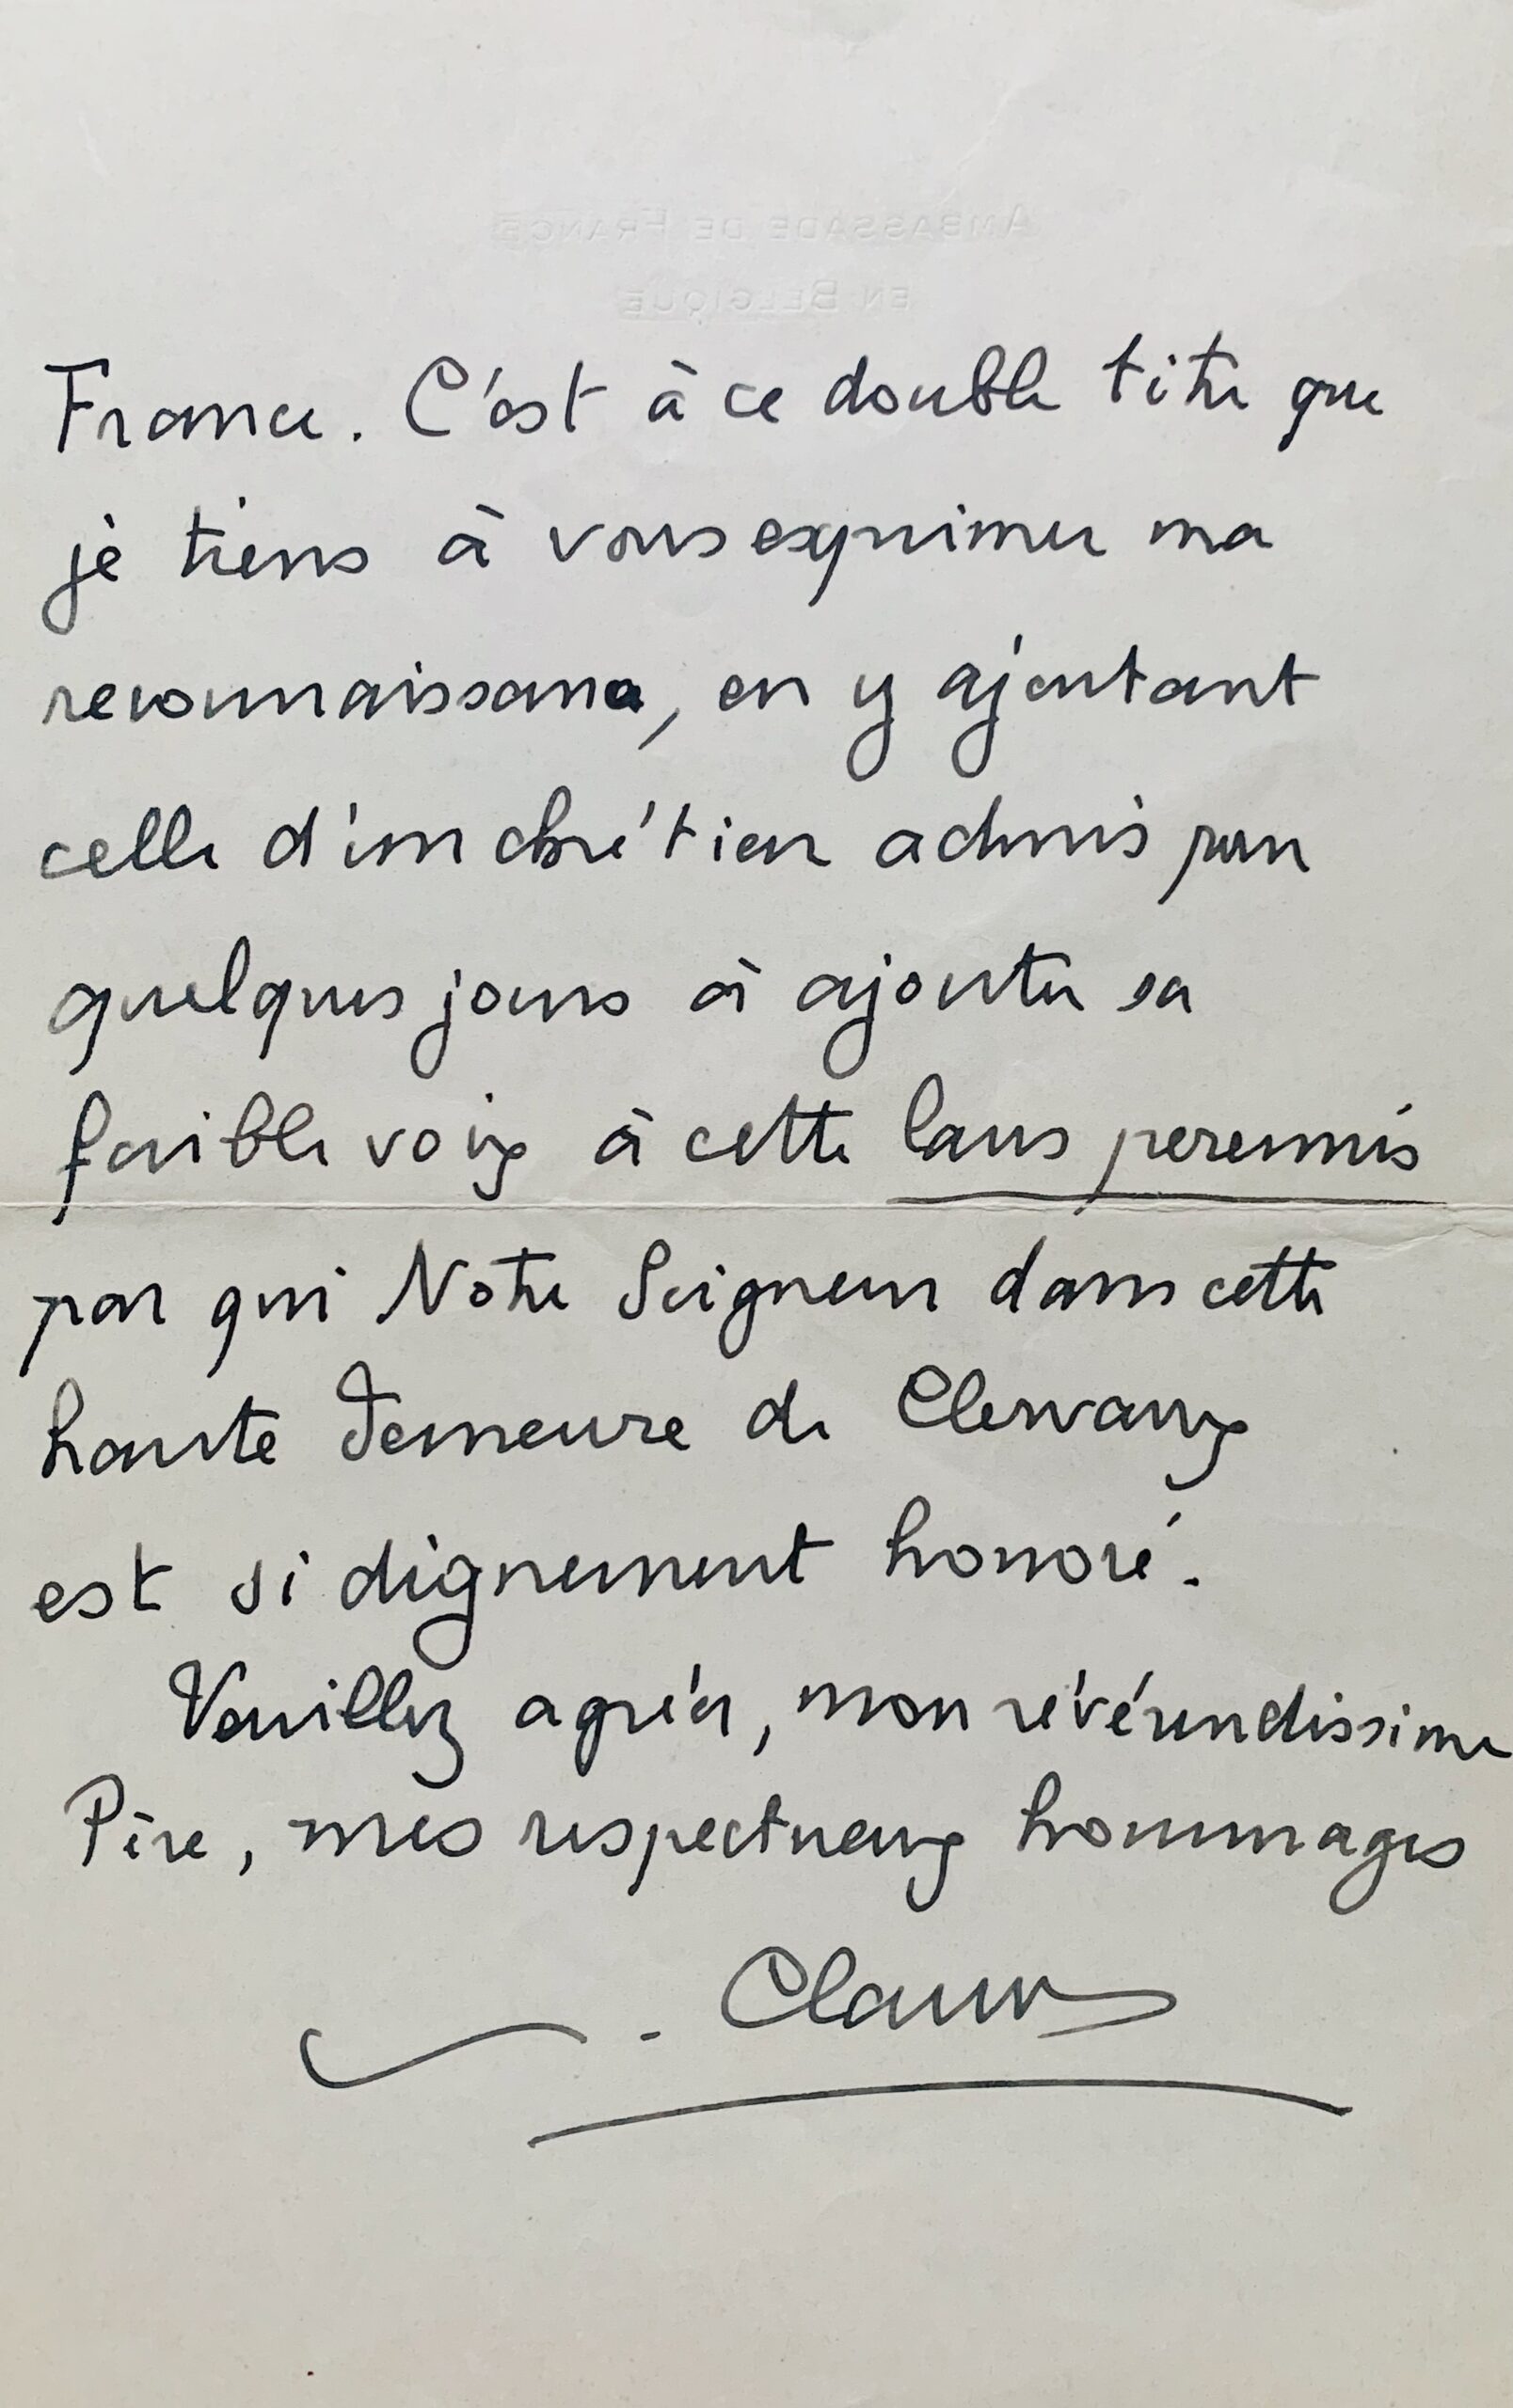 AMBASSADE DE FRANCE
EN BELGIQUE
France. C'est à ce double titre que
je tiens à vous exprimer ma
reconnaissance, en y ajoutant
celle d'un chrétien admis pour
quelques jours à ajouter sa
faible voix à cette laus perennis
par qui Notre Seigneur dans cette
haute demeure de Clervaux
est si dignement honoré.
Veuillez agréer, mon révérendissime
Père, mes respectueux hommages